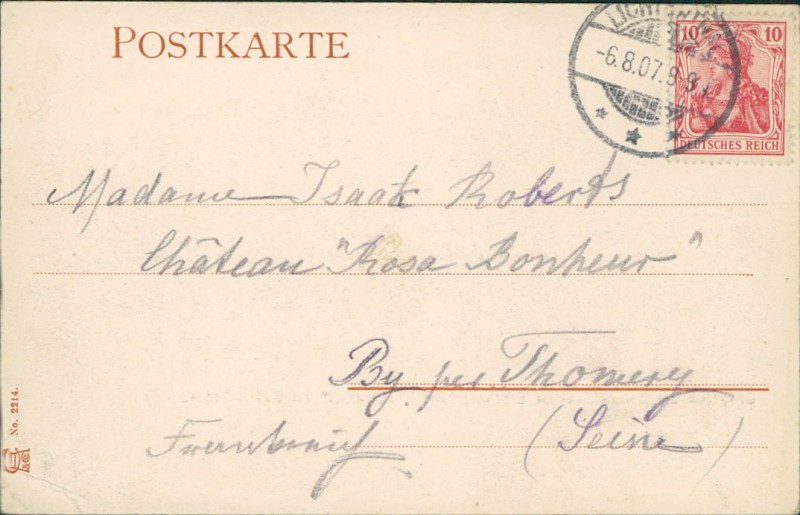 POSTKARTE
10 10
-6.8.07.8-9
DEUTSCHES REICH
Madame Isaak Roberts
Château "Rosa Bonheur"
By per Thomery
Frankreich (Seine)
No. 2214.